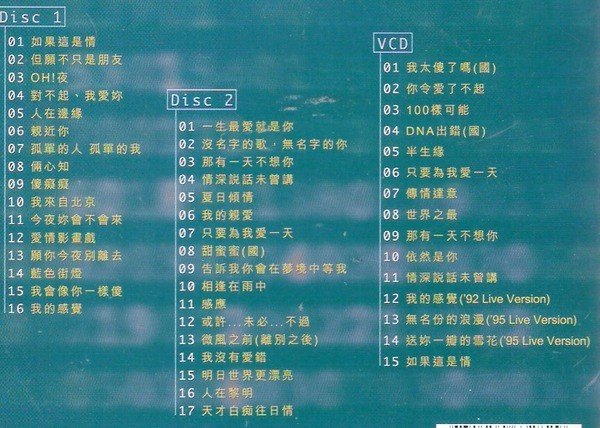 Disc 1
01 如果這是情
02 但願不只是朋友
03 OH!夜
04 對不起、我愛妳
05 人在邊緣
06 親近你
07 孤單的人 孤單的我
08 倆心知
09 傻癡癡
10 我來自北京
11 今夜妳會不會來
12 愛情影畫戲
13 願你今夜別離去
14 藍色街燈
15 我會像你一樣傻
16 我的感覺
Disc 2
01 一生最愛就是你
02 沒名字的歌，無名字的你
03 那有一天不想你
04 情深說話未曾講
05 夏日傾情
06 我的親愛
07 只要為我愛一天
08 甜蜜蜜(國)
09 告訴我你會在夢境中等我
10 相逢在雨中
11 感應
12 或許...未必...不過
13 微風之前(離別之後)
14 我沒有愛錯
15 明日世界更漂亮
16 人在黎明
17 天才白痴往日情
VCD
01 我太傻了嗎(國)
02 你令愛了不起
03 100樣可能
04 DNA出錯(國)
05 半生緣
06 只要為我愛一天
07 傳情達意
08 世界之最
09 那有一天不想你
10 依然是你
11 情深說話未曾講
12 我的感覺('92 Live Version)
13 無名份的浪漫('95 Live Version)
14 送妳一瓣的雪花('95 Live Version)
15 如果這是情